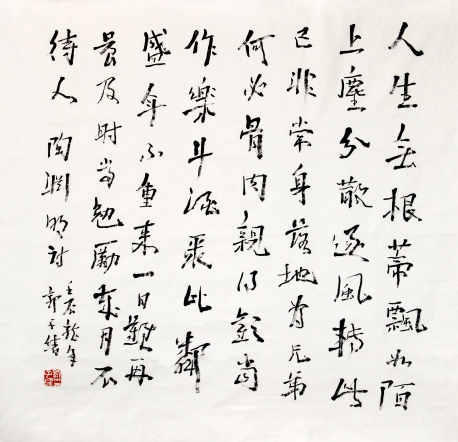 人生無根蒂飄如陌
上塵分散逐風轉此
已非常身落地為兄弟
何必骨肉親得歡當
作樂斗酒聚比鄰
盛年不重來一日難再
晨及時當勉勵歲月不
待人 陶淵明詩
壬辰龍年
郭子緒